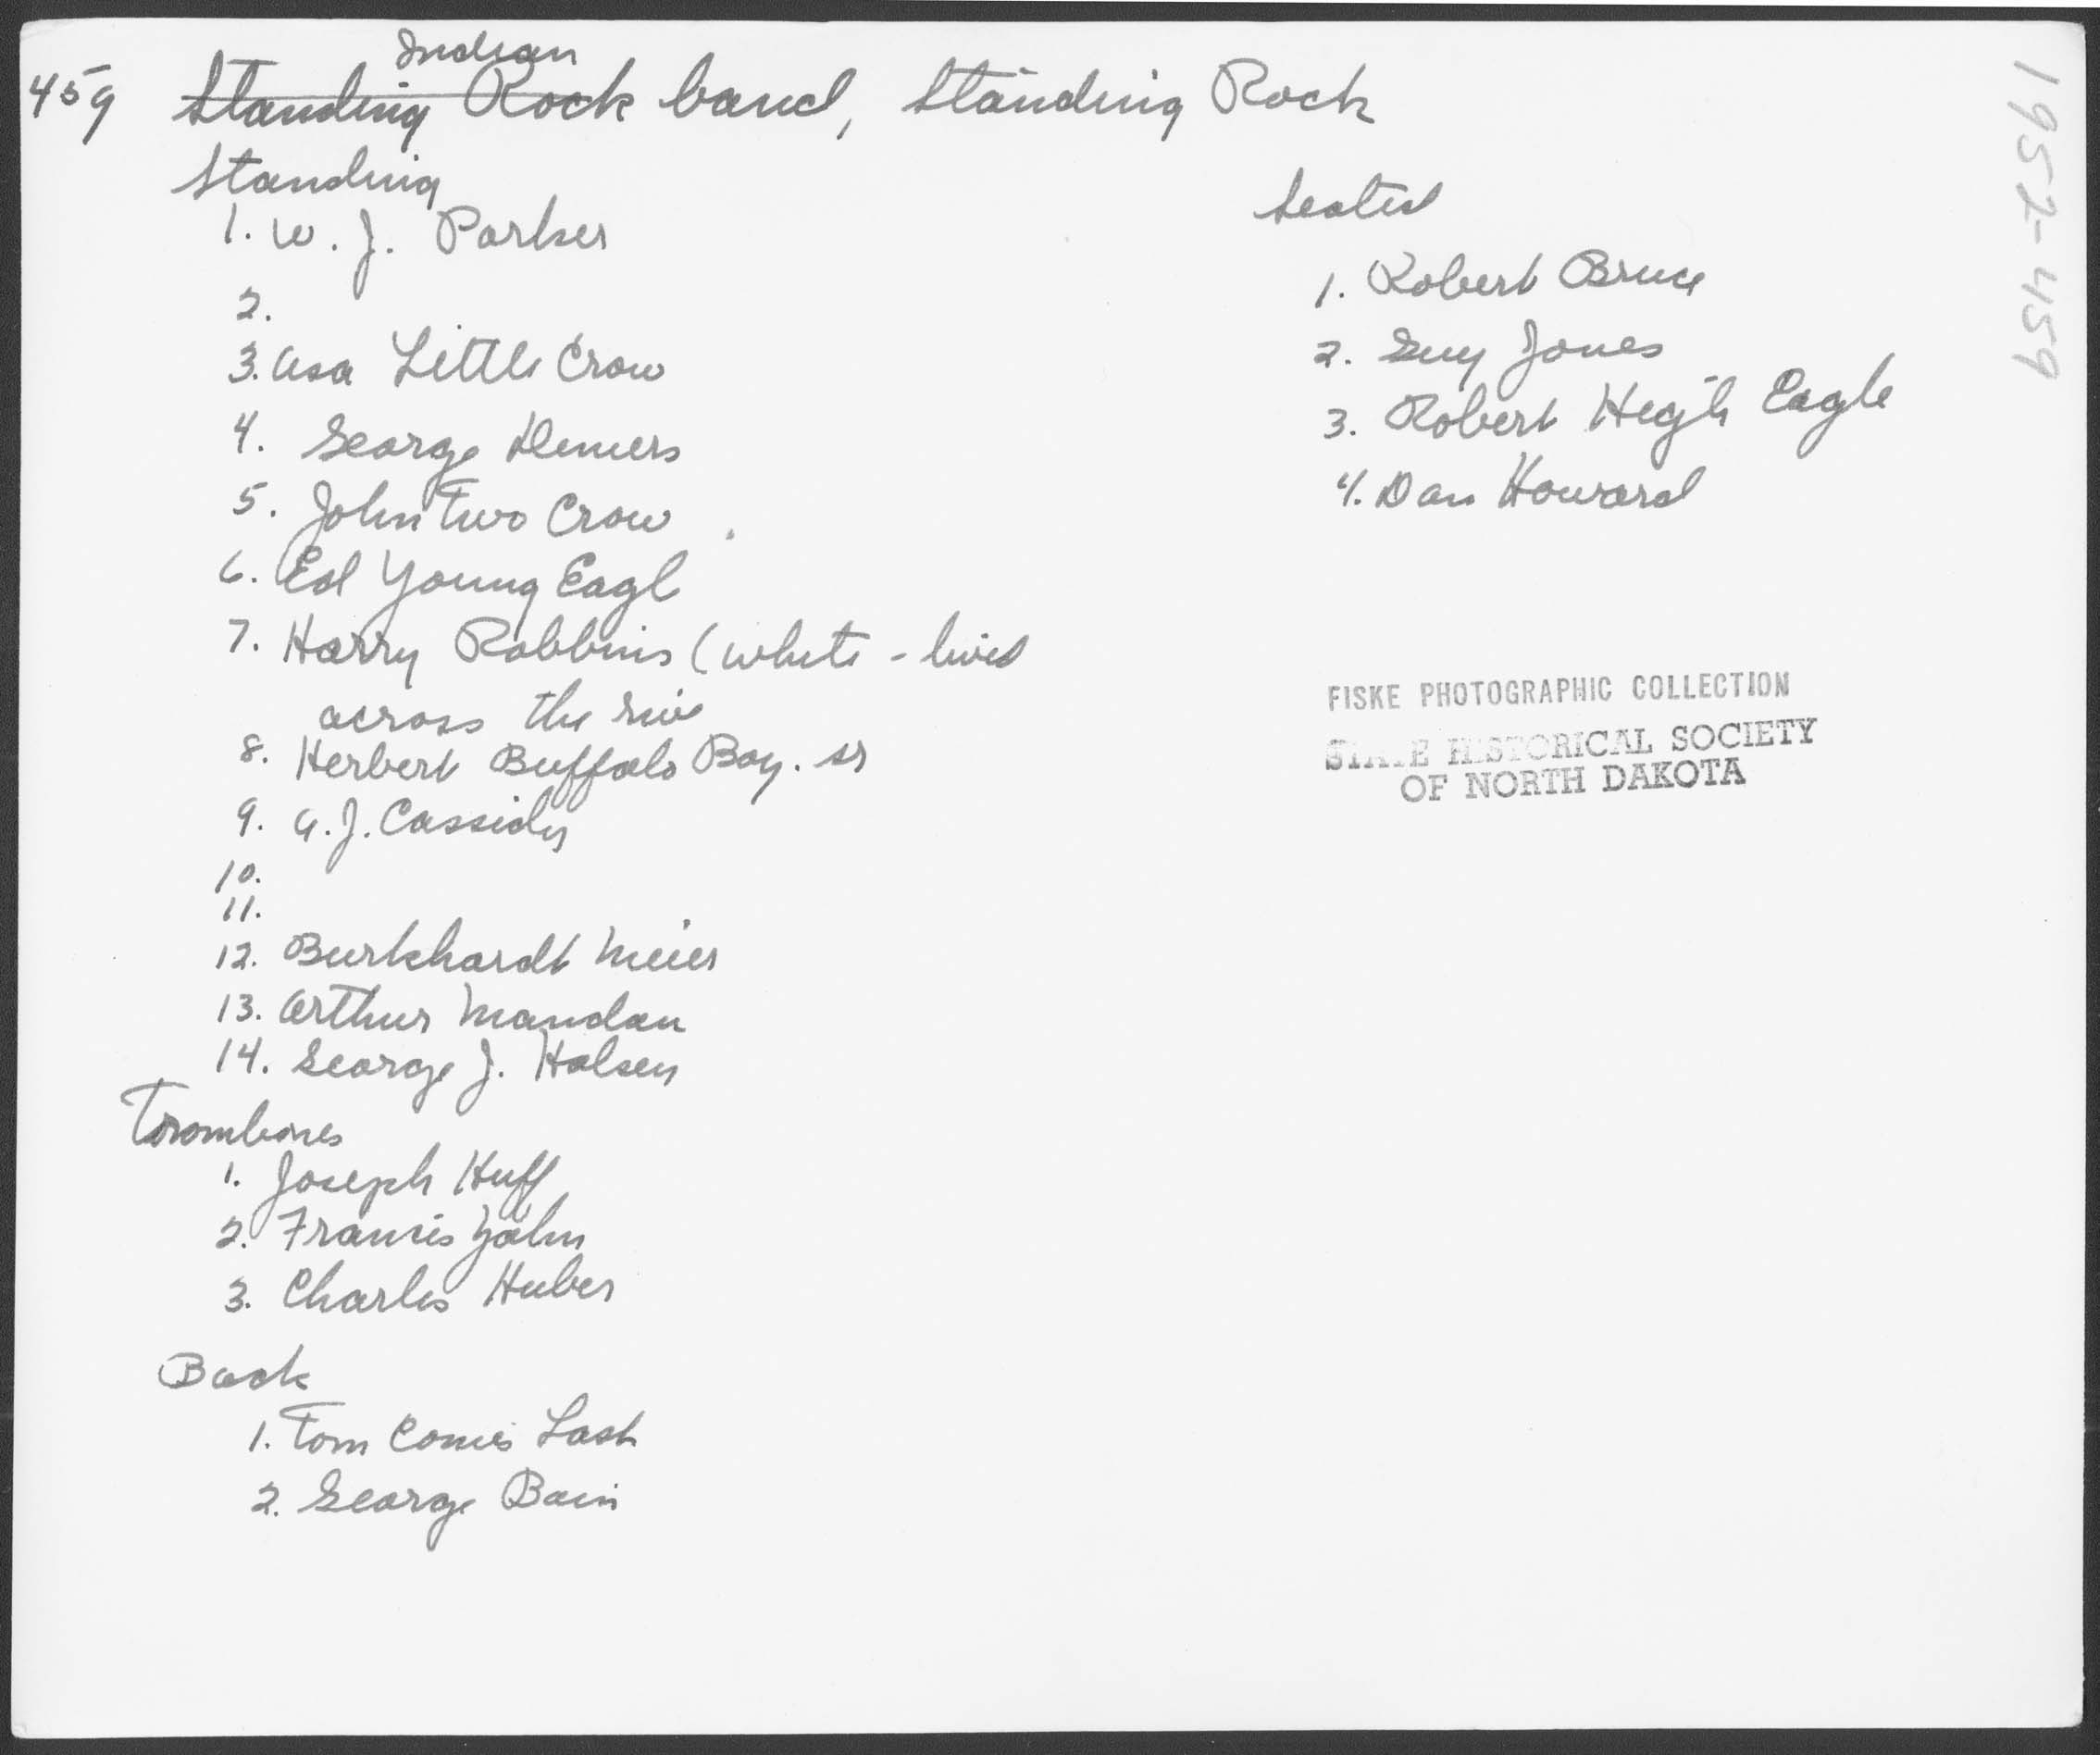 Indian
459 Standing Rock band, Standing Rock
Standing
1. W. J. Parker
2.
3. Asa Little Crow
4. George Demers
5. John Two Crow
6. Ed Young Eagl
7. Harry Robbins (white - lived
across the rive
8. Herbert Buffalo Boy. sr
9. A. J. Cassidy
10.
11.
12. Burkhardt Meier
13. Arthur Mandan
14. George J. Halsey
Trombones
1. Joseph Huff
2. Francis Zahn
3. Charles Huber
Back
1. Tom Comes Last
2. George Bain
Seated
1. Robert Bruce
2. Guy Jones
3. Robert High Eagle
4. Dan Howard
FISKE PHOTOGRAPHIC COLLECTION
STATE HISTORICAL SOCIETY
OF NORTH DAKOTA
1952-459